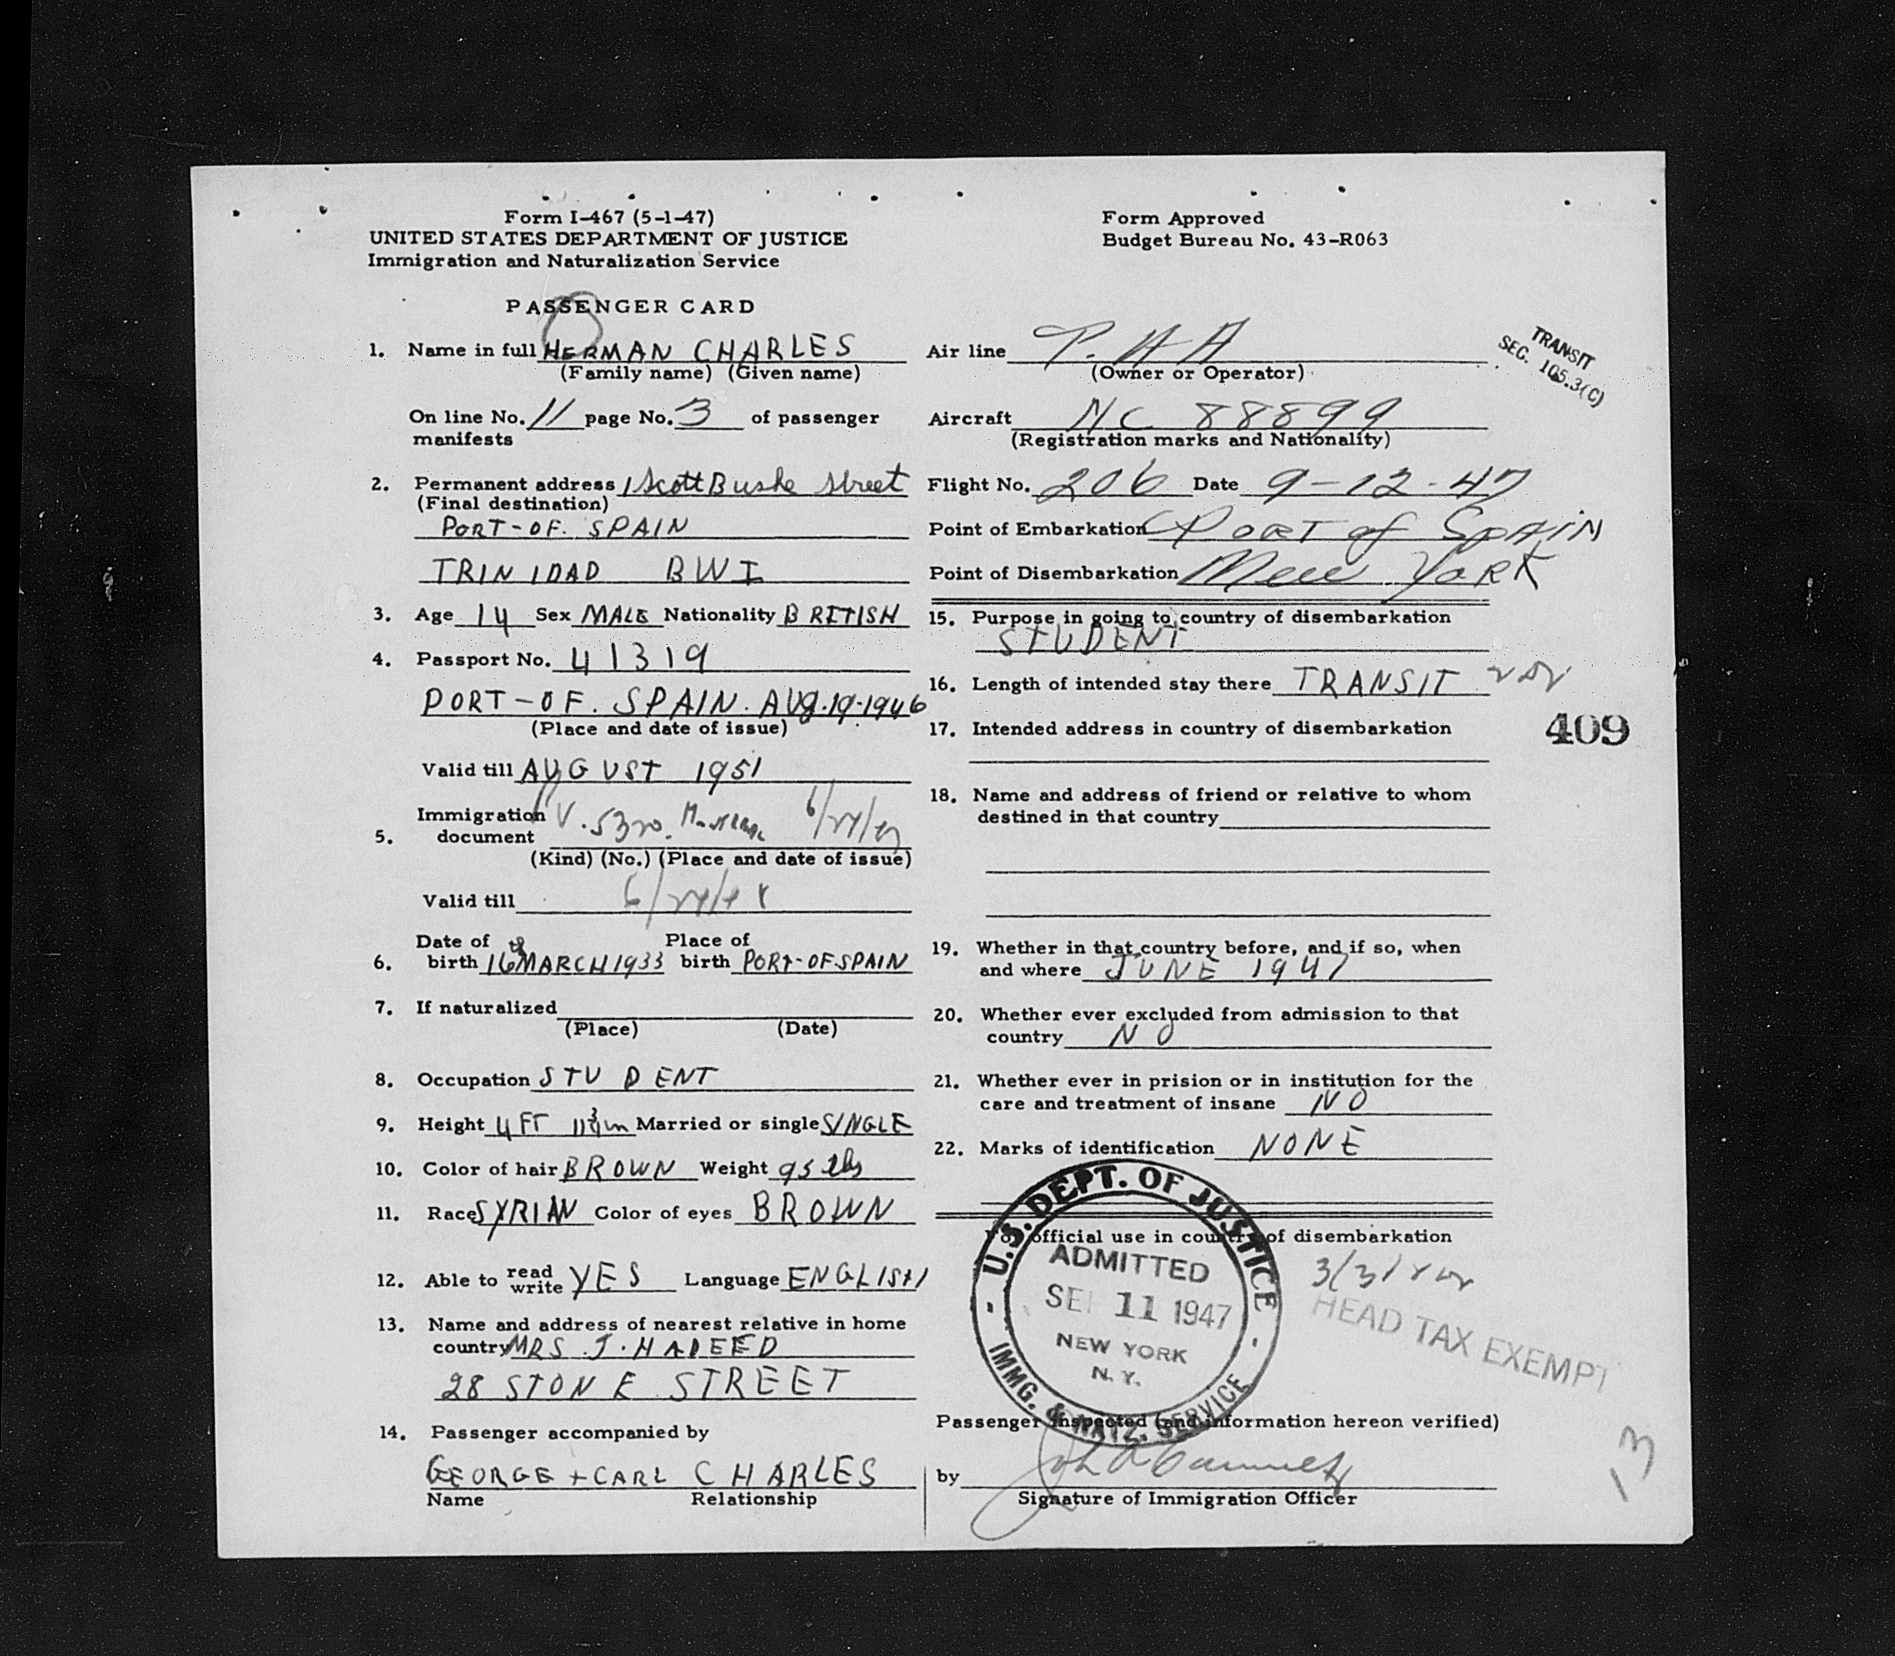 Form I-467 (5-1-47)
UNITED STATES DEPARTMENT OF JUSTICE
Immigration and Naturalization Service
Form Approved
Budget Bureau No. 43-R063
PASSENGER CARD
1. Name in full HERMAN CHARLES
(Family name) (Given name)
On line No. 11 page No. 3 of passenger
manifests
2. Permanent address 1 Scott Bushe Street
(Final destination)
PORT-OF. SPAIN
TRINIDAD BWI
3. Age 14 Sex MALE Nationality BRITISH
4. Passport No. 41319
PORT-OF. SPAIN. AUG.19.1946
(Place and date of issue)
Valid till AUGUST 1951
Immigration
5. document V.
(Kind) (No.) (Place and date of issue)
Valid till
Date of Place of
6. birth 16th MARCH 1933 birth PORT-OF SPAIN
7. If naturalized
(Place) (Date)
8. Occupation STUDENT
9. Height 4 FT 11 3/4 in Married or single SINGLE
10. Color of hair BROWN Weight 95 lbs
11. Race SYRIAN Color of eyes BROWN
12. Able to read write YES Language ENGLISH
13. Name and address of nearest relative in home
country MRS. J. HADEED
28 STONE STREET
14. Passenger accompanied by
GEORGE + CARL CHARLES
Name Relationship
Air line P.A.A
(Owner or Operator)
TRANSIT
SEC. 105.3(C)
Aircraft NC 88899
(Registration marks and Nationality)
Flight No. 206 Date 9-12-47
Point of Embarkation PORT of SPAIN
Point of Disembarkation New York
15. Purpose in going to country of disembarkation
STUDENT
16. Length of intended stay there TRANSIT
17. Intended address in country of disembarkation
409
18. Name and address of friend or relative to whom
destined in that country
19. Whether in that country before, and if so, when
and where JUNE 1947
20. Whether ever excluded from admission to that
country NO
21. Whether ever in prision or in institution for the
care and treatment of insane NO
22. Marks of identification NONE
For official use in country of disembarkation
U.S. DEPT. OF JUSTICE
ADMITTED
SEP 11 1947
NEW YORK
N.Y.
IMMG. & NATZ. SERVICE
HEAD TAX EXEMPT
Passenger Inspected (and information hereon verified)
by
Signature of Immigration Officer
13